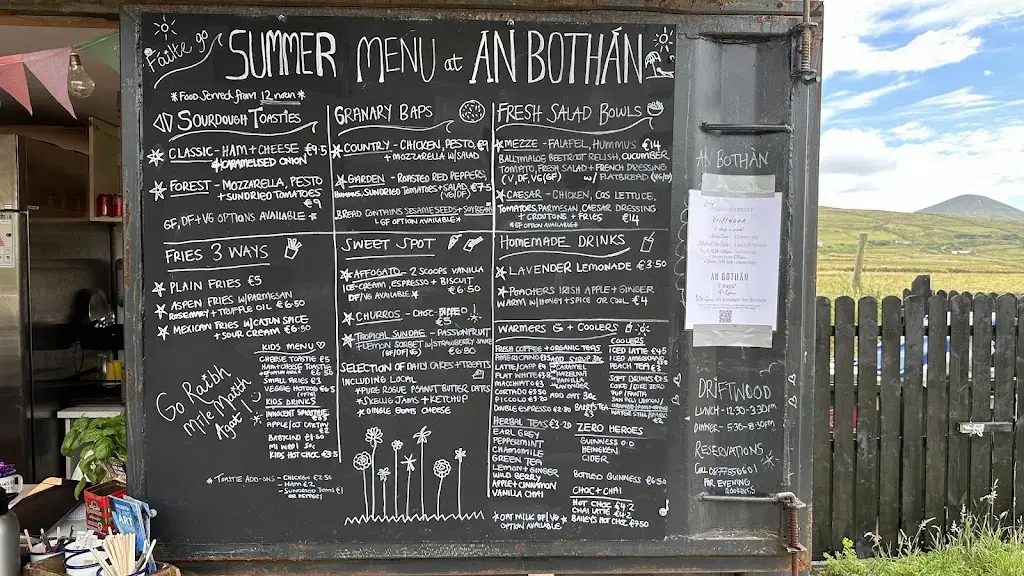 Fáilte go
SUMMER MENU at AN BOTHÁN
*Food Served from 12 noon*
SOURDOUGH TOASTIES
CLASSIC - HAM + CHEESE €9.5
+ CARAMELISED ONION
FOREST - MOZZARELLA, PESTO
+ SUNDRIED TOMATOES
€9
GF, DF + VG OPTIONS AVAILABLE
FRIES 3 WAYS
PLAIN FRIES €5
ASPEN FRIES W/PARMESAN
ROSEMARY + TRUFFLE OIL €6.50
MEXICAN FRIES W/CAJUN SPICE
+ SOUR CREAM €6.50
KIDS MENU
CHEESE TOASTIE €5
HAM + CHEESE TOASTIE
SMALL FRIES €3
VEGGIE HOTDOG
KIDS DRINKS
INNOCENT SMOOTHIE
APPLE/OJ CARTON
BABYCINO
MI WADI
KIDS HOT CHOC €3.5
Go Raibh
Míle Maith
Agat!
*TOASTIE ADD-ONS - CHICKEN €2.50
- HAM €2
- SUNDRIED TOMS €1
OR PEPPERS
GRANARY BAPS
COUNTRY - CHICKEN, PESTO €9
+ MOZZARELLA W/SALAD
GARDEN - ROASTED RED PEPPERS,
HUMMUS, SUNDRIED TOMATOES + SALAD €7.5
(VG/DF)
BREAD CONTAINS SESAME SEEDS + SOYBEAN
*GF OPTION AVAILABLE*
SWEET SPOT
AFFOGATO - 2 SCOOPS VANILLA
ICE-CREAM, ESPRESSO + BISCUIT
DF/VG AVAILABLE €6.50
CHURROS - CHOC
€5
TROPICAL SUNDAE - PASSIONFRUIT
+ LEMON SORBET W/STRAWBERRY SAUCE
(GF/DF/VG) €6.50
SELECTION OF DAILY CAKES + TREATS
INCLUDING LOCAL
*PURE ROGUE PEANUT BUTTER CUPS
*SKELLIG JAMS + KETCHUP
*DINGLE GOATS CHEESE
FRESH SALAD BOWLS
MEZZE - FALAFEL, HUMMUS €14
BALLYMALOE BEETROOT RELISH, CUCUMBER
TOMATO, FRESH SALAD + FRENCH DRESSING
(V, DF, VG, GF) W/ FLATBREAD (VG/DF)
CAESAR - CHICKEN, COS LETTUCE,
TOMATOES, PARMESAN CAESAR DRESSING
+ CROUTONS + FRIES €14
*GF OPTION AVAILABLE*
HOMEMADE DRINKS
LAVENDER LEMONADE €3.50
POACHERS IRISH APPLE + GINGER
WARM W/HONEY + SPICE OR COOL €4
WARMERS + COOLERS
FRESH COFFEE + ORGANIC TEAS
AMERICANO
LATTE/CAPP €4
FLAT WHITE
MACCHIATO
CORTADO
PICCOLO
DOUBLE ESPRESSO
ADD SYRUP 50c
*CARAMEL
*HAZELNUT
*VANILLA
*LAVENDER
ADD OAT 30c
BARRY'S TEA
HERBAL TEAS €3.20
EARL GREY
PEPPERMINT
CHAMOMILE
GREEN TEA
LEMON + GINGER
WILD BERRY
APPLE + CINNAMON
VANILLA CHAI
*OAT MILK DF/VG
OPTION AVAILABLE*
COOLERS
ICED LATTE €4.5
ICED AMERICANO
PEACH TEA
SOFT DRINKS
COKE/COKE ZERO
7UP/FANTA
SAN PELLEGRINO
WATER STILL/SPARK
ZERO HEROES
GUINNESS 0.0
HEINEKEN
CIDER
BOTTLED GUINNESS €6.50
CHOC + CHAI
HOT CHOC €4.2
CHAI LATTE €4.2
BAILEYS HOT CHOC €7.50
AN BOTHÁN
Driftwood
AN BOTHÁN
7 days!
DRIFTWOOD
LUNCH - 12.30-3.30PM
DINNER - 5.30-8.30PM
RESERVATIONS
CALL
FOR EVENING
BOOKINGS